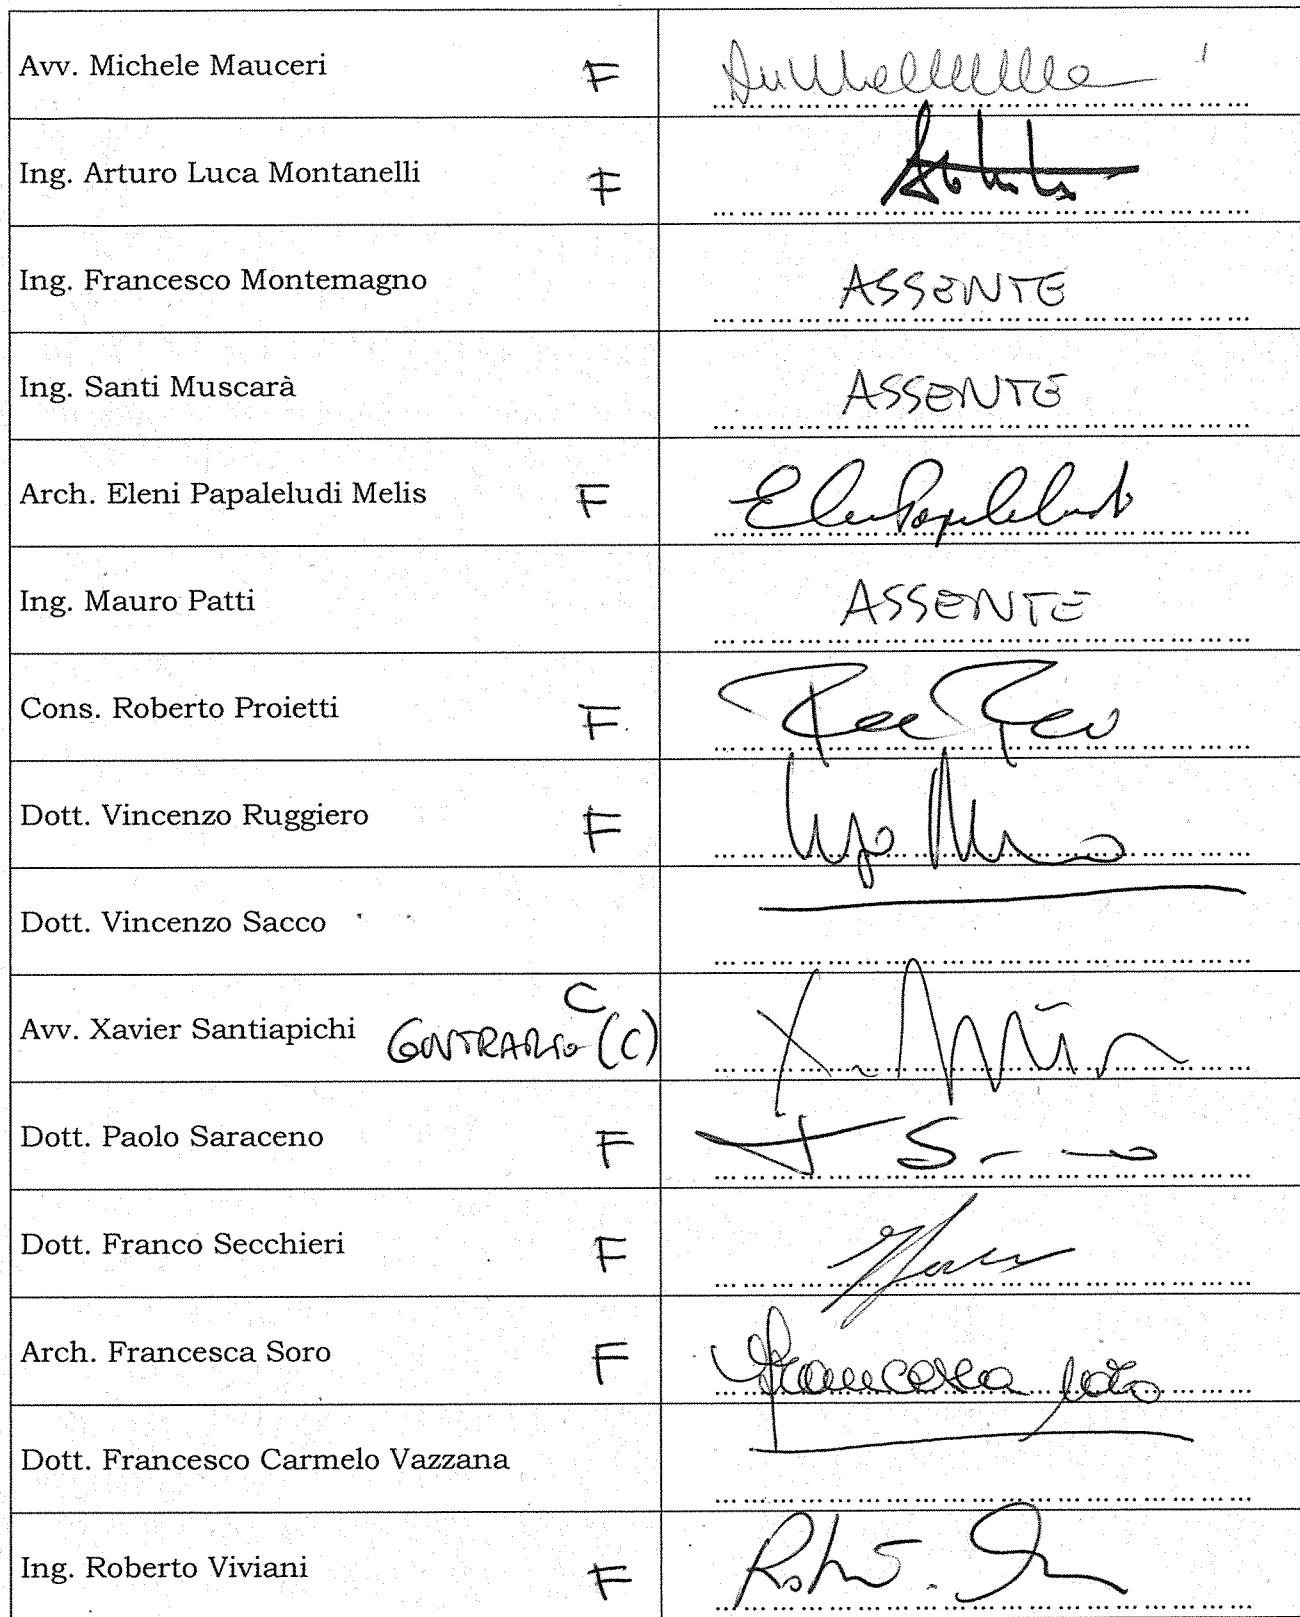 Avv. Michele Mauceri F
Ing. Arturo Luca Montanelli F
Ing. Francesco Montemagno ASSENTE
Ing. Santi Muscarà ASSENTE
Arch. Eleni Papaleludi Melis F
Ing. Mauro Patti ASSENTE
Cons. Roberto Proietti F
Dott. Vincenzo Ruggiero F
Dott. Vincenzo Sacco
C
Avv. Xavier Santiapichi CONTRARIO (C)
Dott. Paolo Saraceno F
Dott. Franco Secchieri F
Arch. Francesca Soro F Francesca Soro
Dott. Francesco Carmelo Vazzana
Ing. Roberto Viviani F